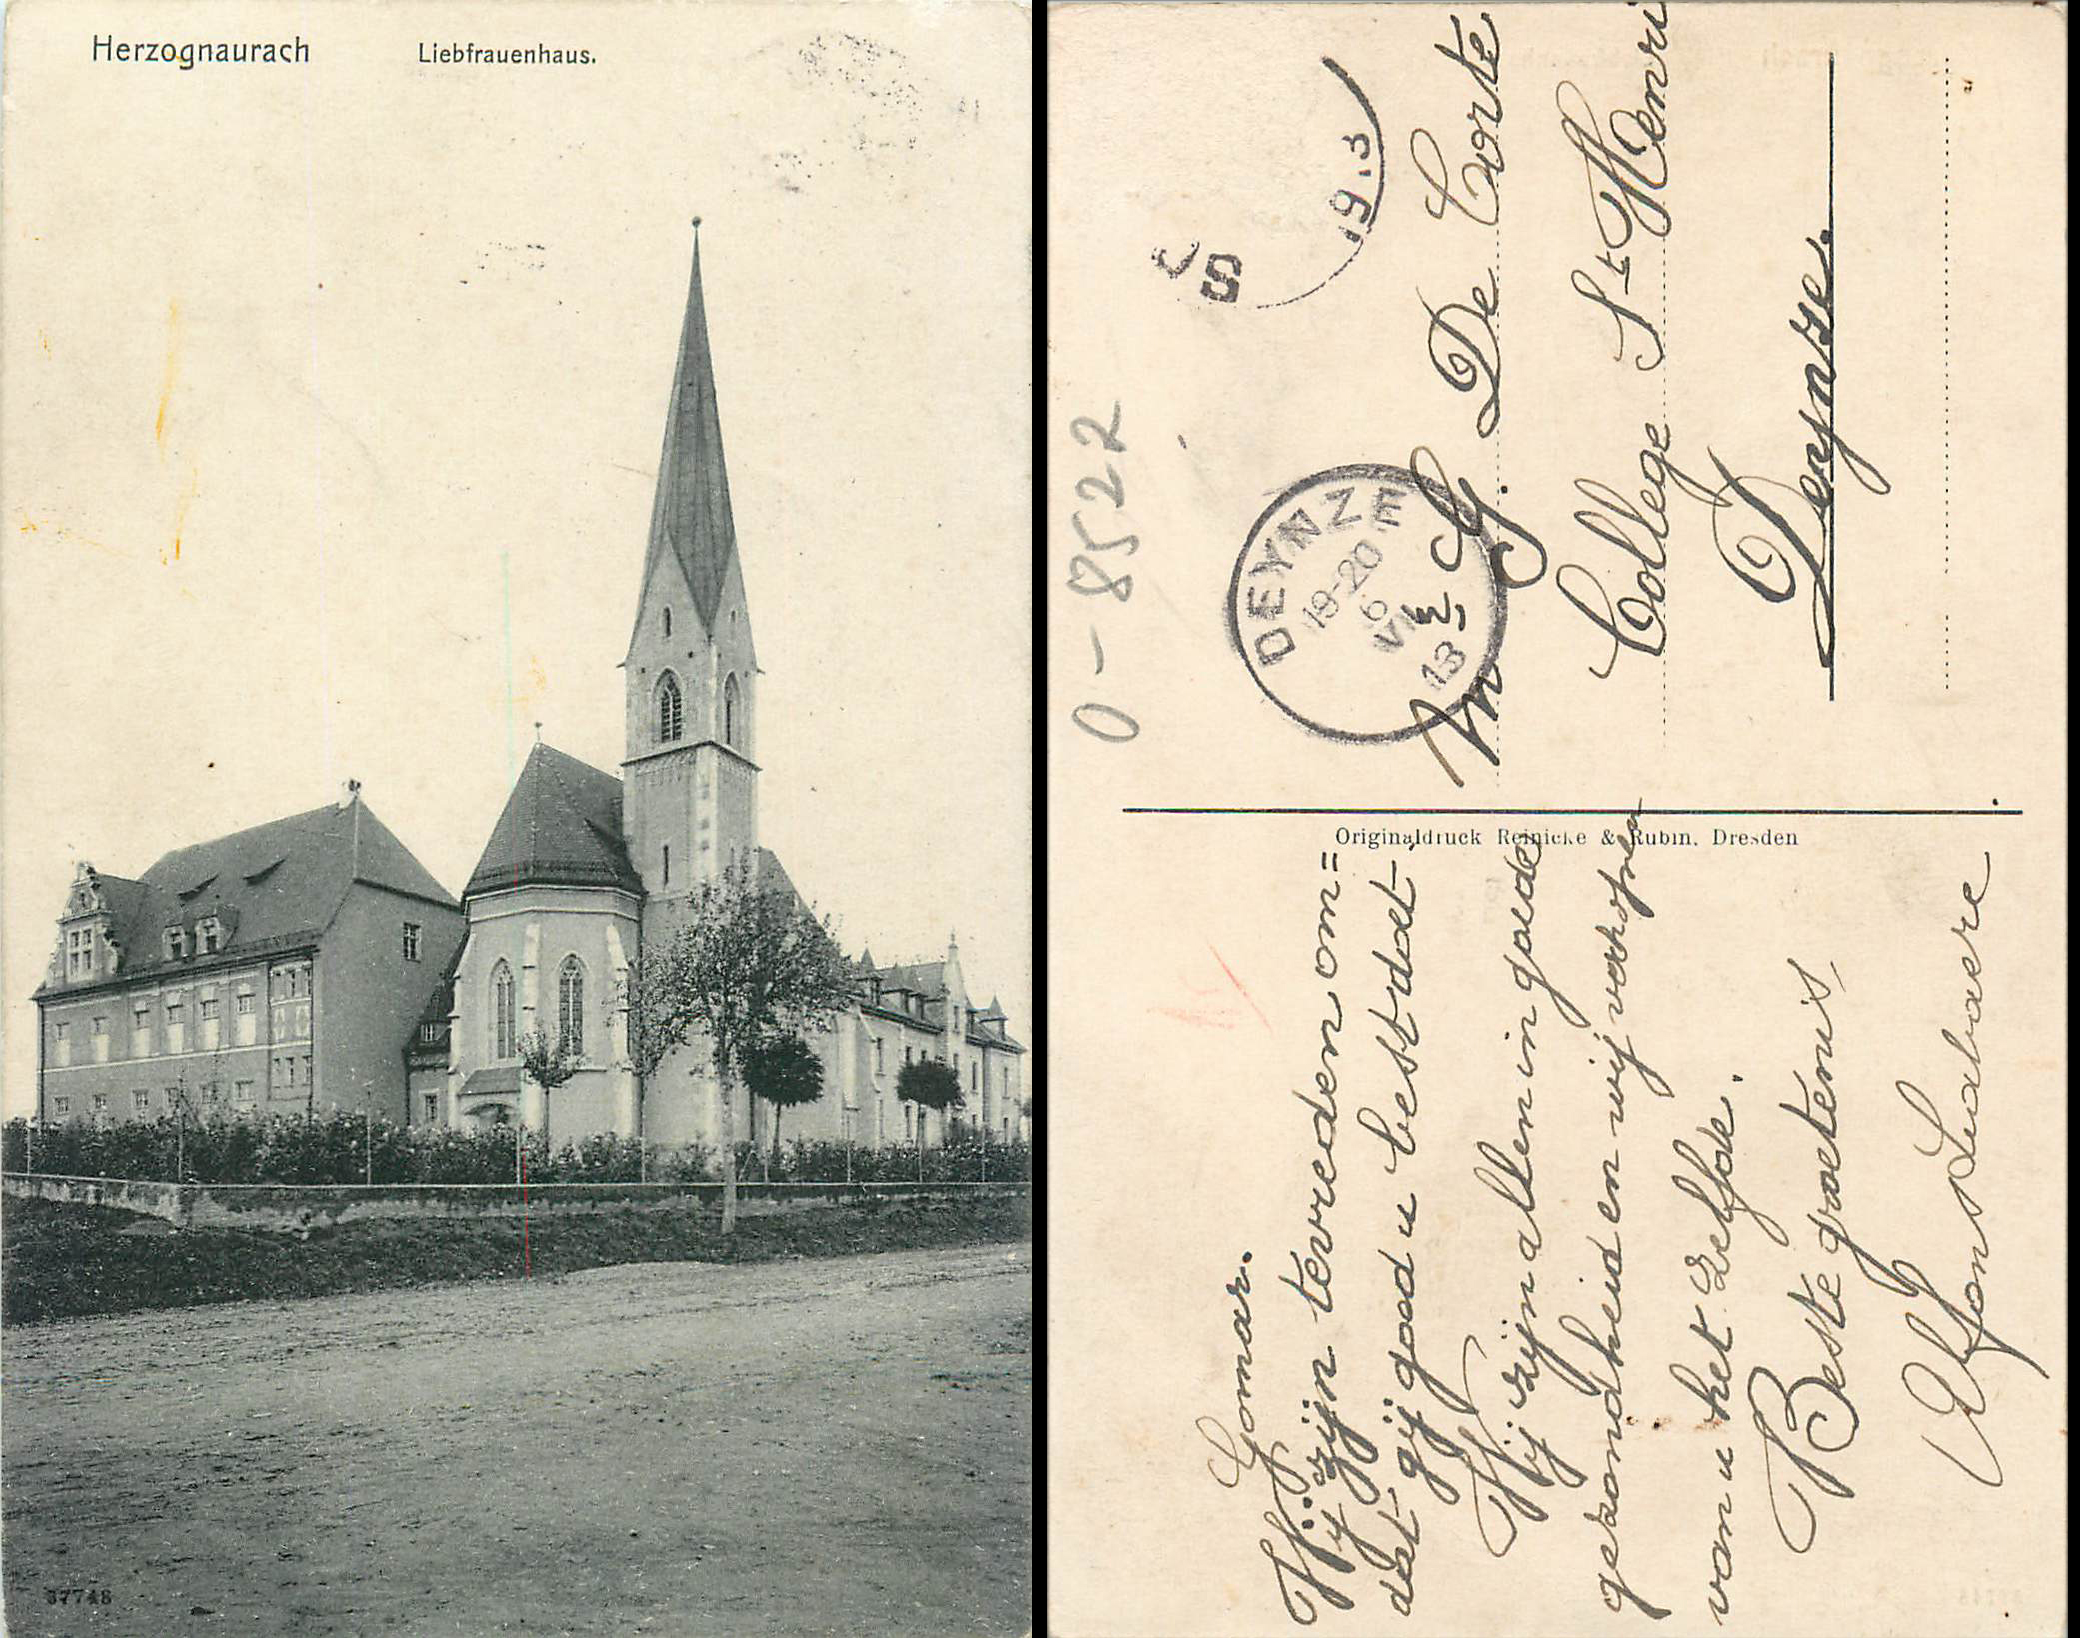 Herzognaurach
Liebfrauenhaus.
37748
0-8522
S
19.3
DEYNZE
19-20
6
VI
13
G. De Corte
College St Henri
Deynze.
Originaldruck Reinicke & Rubin. Dresden
Gomar.
Wij zijn tevreden om=
dat gij goed u best doet.
Wij zijn allen in goede
gezondheid en wij verhopen
van u het zelfde.
Beste groetenis,
Alfons